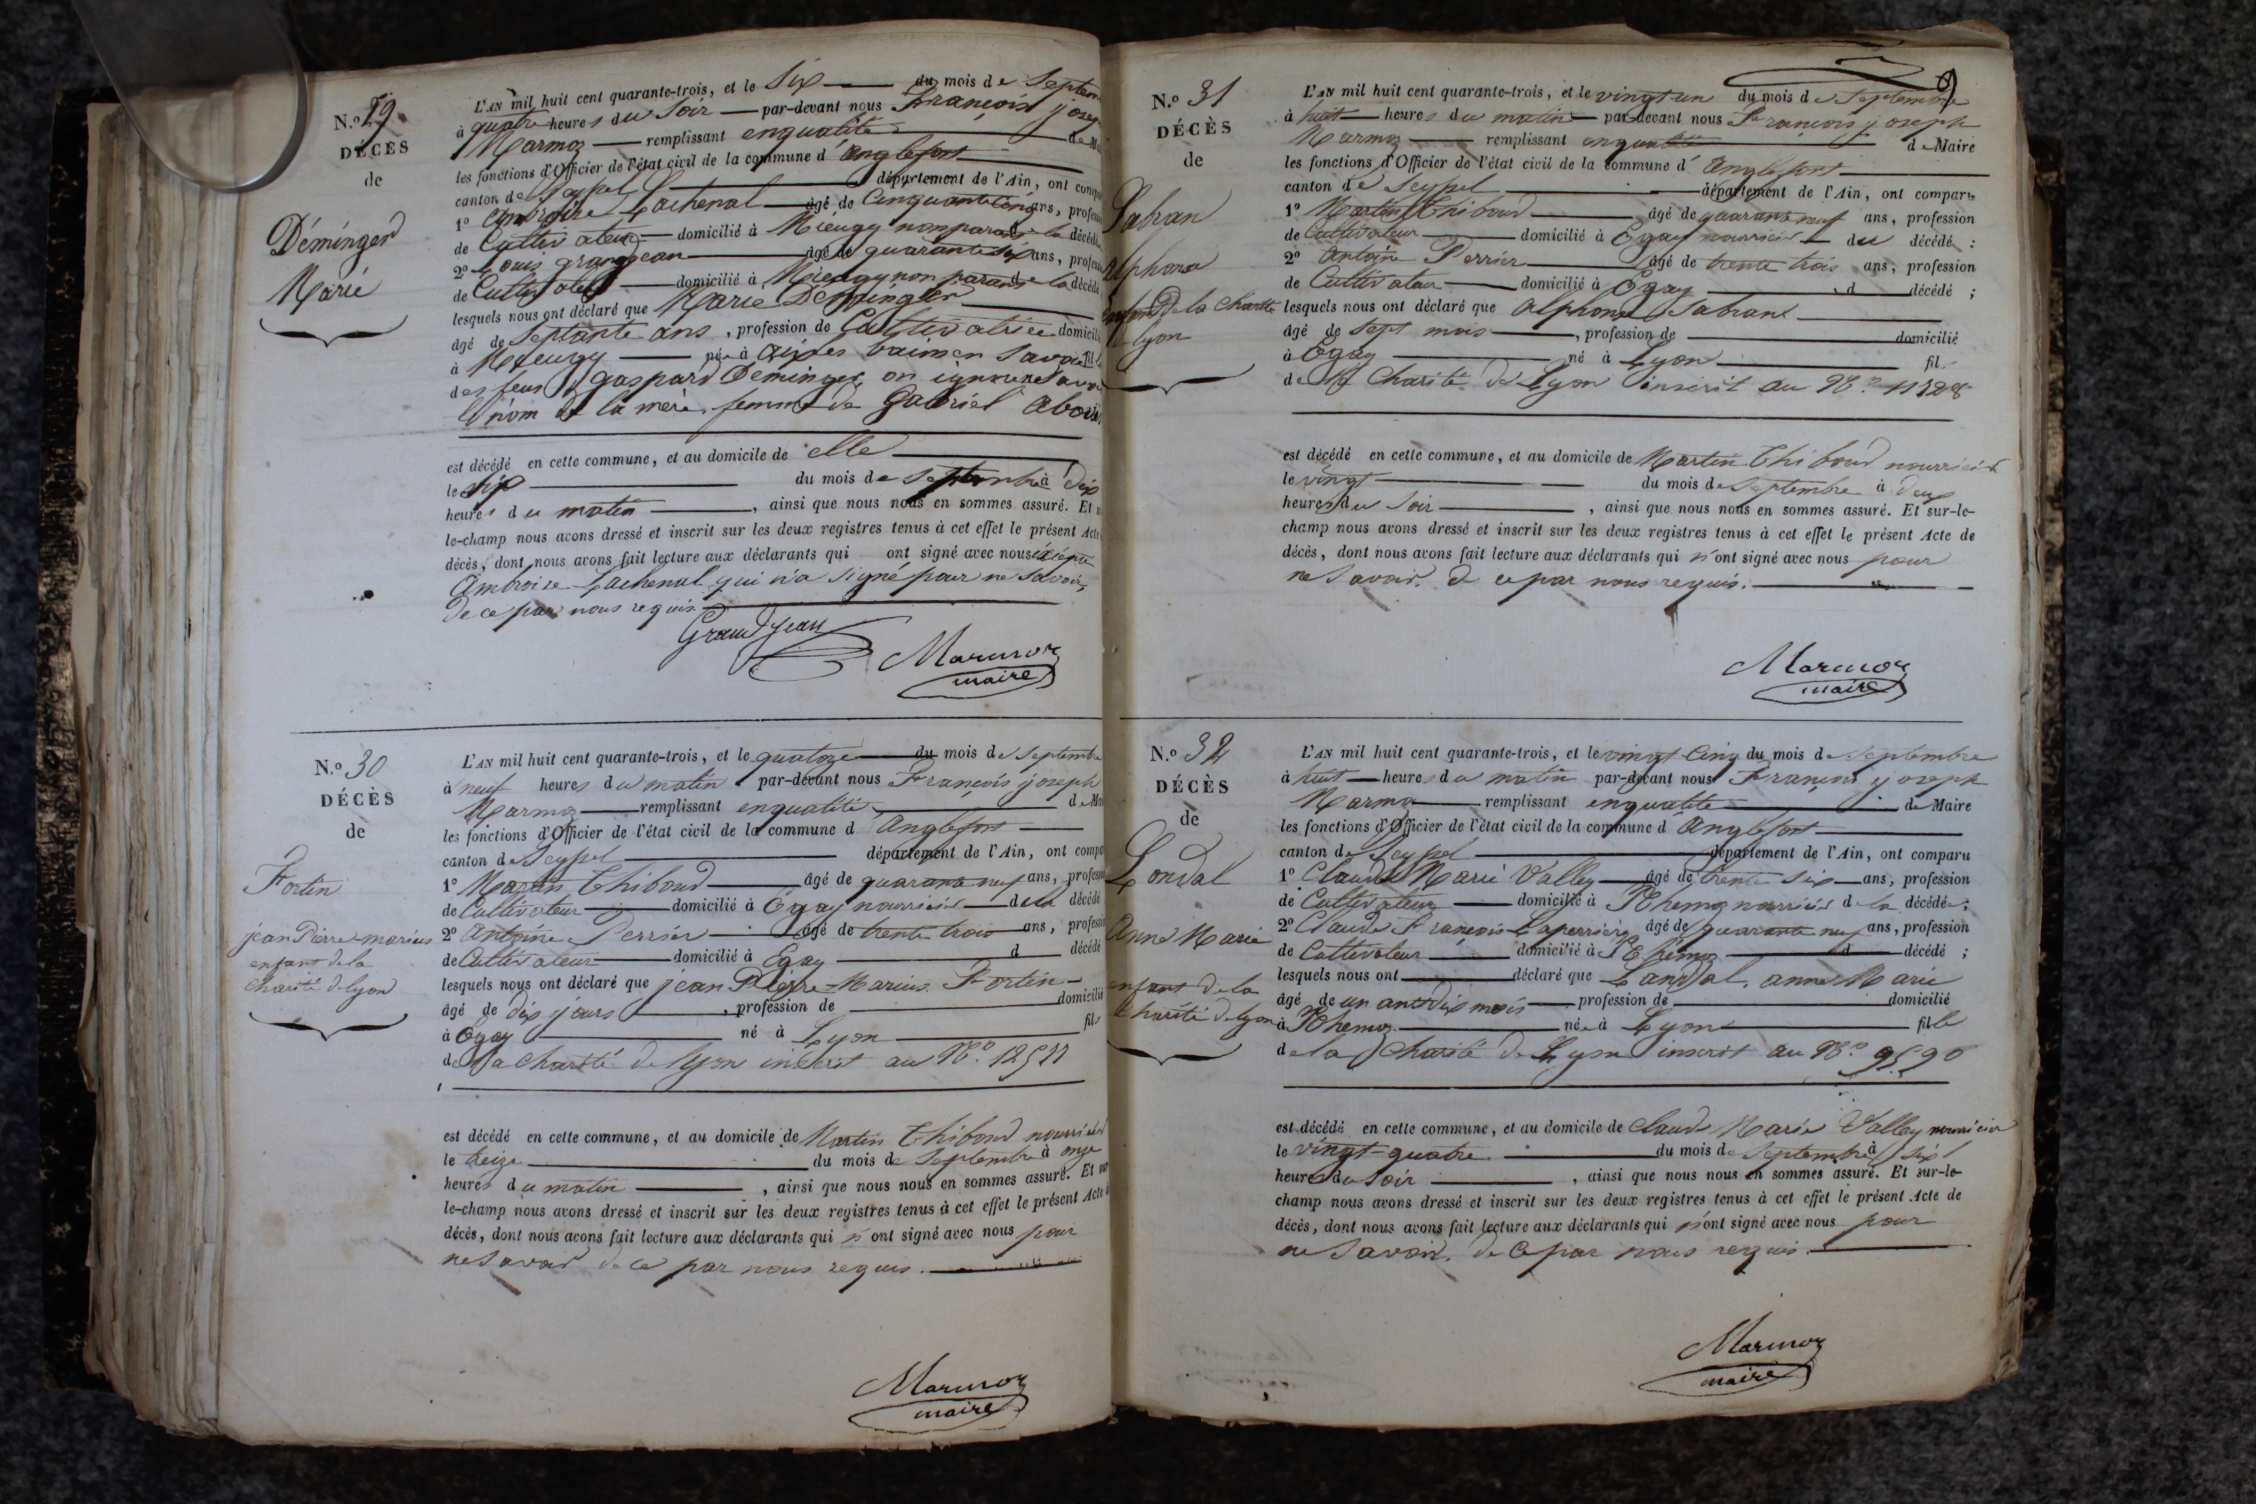 N.o 29.
DÉCÈS
de
Déminger
Marie
L'AN mil huit cent quarante-trois, et le six du mois de Septem
à quatre heures du Soir par-devant nous François josep
Marmoz remplissant enqualité de Ma
les fonctions d'Officier de l'état civil de la commune d'anglefort
canton de Seyssel département de l'Ain, ont compa
1o ambroise Lachenal âgé de Cinquante Cinq ans, profess
de Cultivateur domicilié à Mieugy nonparan de la décédée
2o Louis grandjean âgé de quarante six ans, profess
de Cultivateur domicilié à Mieugy non parand de la décédé
lesquels nous ont déclaré que Marie Déminger
âgé de Septante ans, profession de Cultivatrice domicili
à Mieugy née à aix les bains en Savoie fil
des feus gaspard Déminger, on ignore
le nom de la mère, femme de gabriel
est décédé en cette commune, et au domicile de elle
le six du mois de Septembre à dix
heures du matin, ainsi que nous nous en sommes assuré. Et
le-champ nous avons dressé et inscrit sur les deux registres tenus à cet effet le présent Acte
décès, dont nous avons fait lecture aux déclarants qui ont signé avec nous éxépté
Ambroise Lachenal qui n'a signé pour ne Savoir,
de ce par nous requis.
Grandjean
Marmoz
maire
N.o 30
DÉCÈS
de
Fortin
jean Pierre-marius
enfant de la
charité de lyon
L'AN mil huit cent quarante-trois, et le quatorze du mois de Septembre
à neuf heures du matin par-devant nous François joseph
Marmoz remplissant enqualité de Mai
les fonctions d'Officier de l'état civil de la commune d anglefort
canton de Seyssel département de l'Ain, ont compa
1o Martin Thiboud âgé de quarante neuf ans, profession
de Cultivateur domicilié à Egay nourricier du décédé
2o Antoine Perrier âgé de trente trois ans, profession
de Cultivateur domicilié à Egay d décédé
lesquels nous ont déclaré que jean Pierre-Marius Fortin
âgé de dix jours, profession de domicilié
à Egay né à Lyon fils
de la Charité de lyon inscrit au No. 12511
est décédé en cette commune, et au domicile de Martin Thiboud nourricier
le treize du mois de Septembre à onze
heures du matin, ainsi que nous nous en sommes assuré. Et sur
le-champ nous avons dressé et inscrit sur les deux registres tenus à cet effet le présent Acte
décès, dont nous avons fait lecture aux déclarants qui n'ont signé avec nous pour
ne Savoir de ce par nous requis.
Marmoz
maire
N.o 31
DÉCÈS
de
Sabran
alphonse
enfant de la charité
de lyon
L'AN mil huit cent quarante-trois, et le vingt un du mois de Septembre
à huit heures du matin par-devant nous François joseph
Marmoz remplissant enqualité de Maire
les fonctions d'Officier de l'état civil de la commune d'anglefort
canton de Seyssel département de l'Ain, ont comparu
1o Martin Thiboud âgé de quarante neuf ans, profession
de Cultivateur domicilié à Egay nourricier du décédé :
2o Antoine Perrier âgé de trente trois ans, profession
de Cultivateur domicilié à Egay d décédé ;
lesquels nous ont déclaré que alphonse Sabran
âgé de Sept mois, profession de domicilié
à Egay né à Lyon fil
de la Charité de Lyon inscrit au No. 11328
est décédé en cette commune, et au domicile de Martin Thiboud nourricier
le vingt du mois de Septembre à deux
heures du Soir, ainsi que nous nous en sommes assuré. Et sur-le-
champ nous avons dressé et inscrit sur les deux registres tenus à cet effet le présent Acte de
décès, dont nous avons fait lecture aux déclarants qui n'ont signé avec nous pour
ne Savoir. de ce par nous requis.
Marmoz
maire
N.o 32
DÉCÈS
de
Londal
Anne Marie
enfant de la
Charité de lyon
L'AN mil huit cent quarante-trois, et le vingt Cinq du mois de Septembre
à huit heures du matin par-devant nous François joseph
Marmoz remplissant enqualité de Maire
les fonctions d'Officier de l'état civil de la commune d'anglefort
canton de Seyssel département de l'Ain, ont comparu
1o Claude Marie Valley âgé de trente six ans, profession
de Cultivateur domicilié à Rhemoz nourricier de la décédée ;
2o Claude François Laperrière âgé de quarante neuf ans, profession
de Cultivateur domicilié à Rhemoz d décédé ;
lesquels nous ont déclaré que Landal, anne Marie
âgé de un an dix mois profession de domicilié
à Rhemoz née à Lyon fille
de la Charité de Lyon inscrit au No. 9590
est décédé en cette commune, et au domicile de Claude Marie Valley nourricier
le vingt-quatre du mois de Septembre à six
heures du Soir, ainsi que nous nous en sommes assuré. Et sur-le-
champ nous avons dressé et inscrit sur les deux registres tenus à cet effet le présent Acte de
décès, dont nous avons fait lecture aux déclarants qui n'ont signé avec nous pour
ne Savoir, de Ce par nous requis.
Marmoz
maire